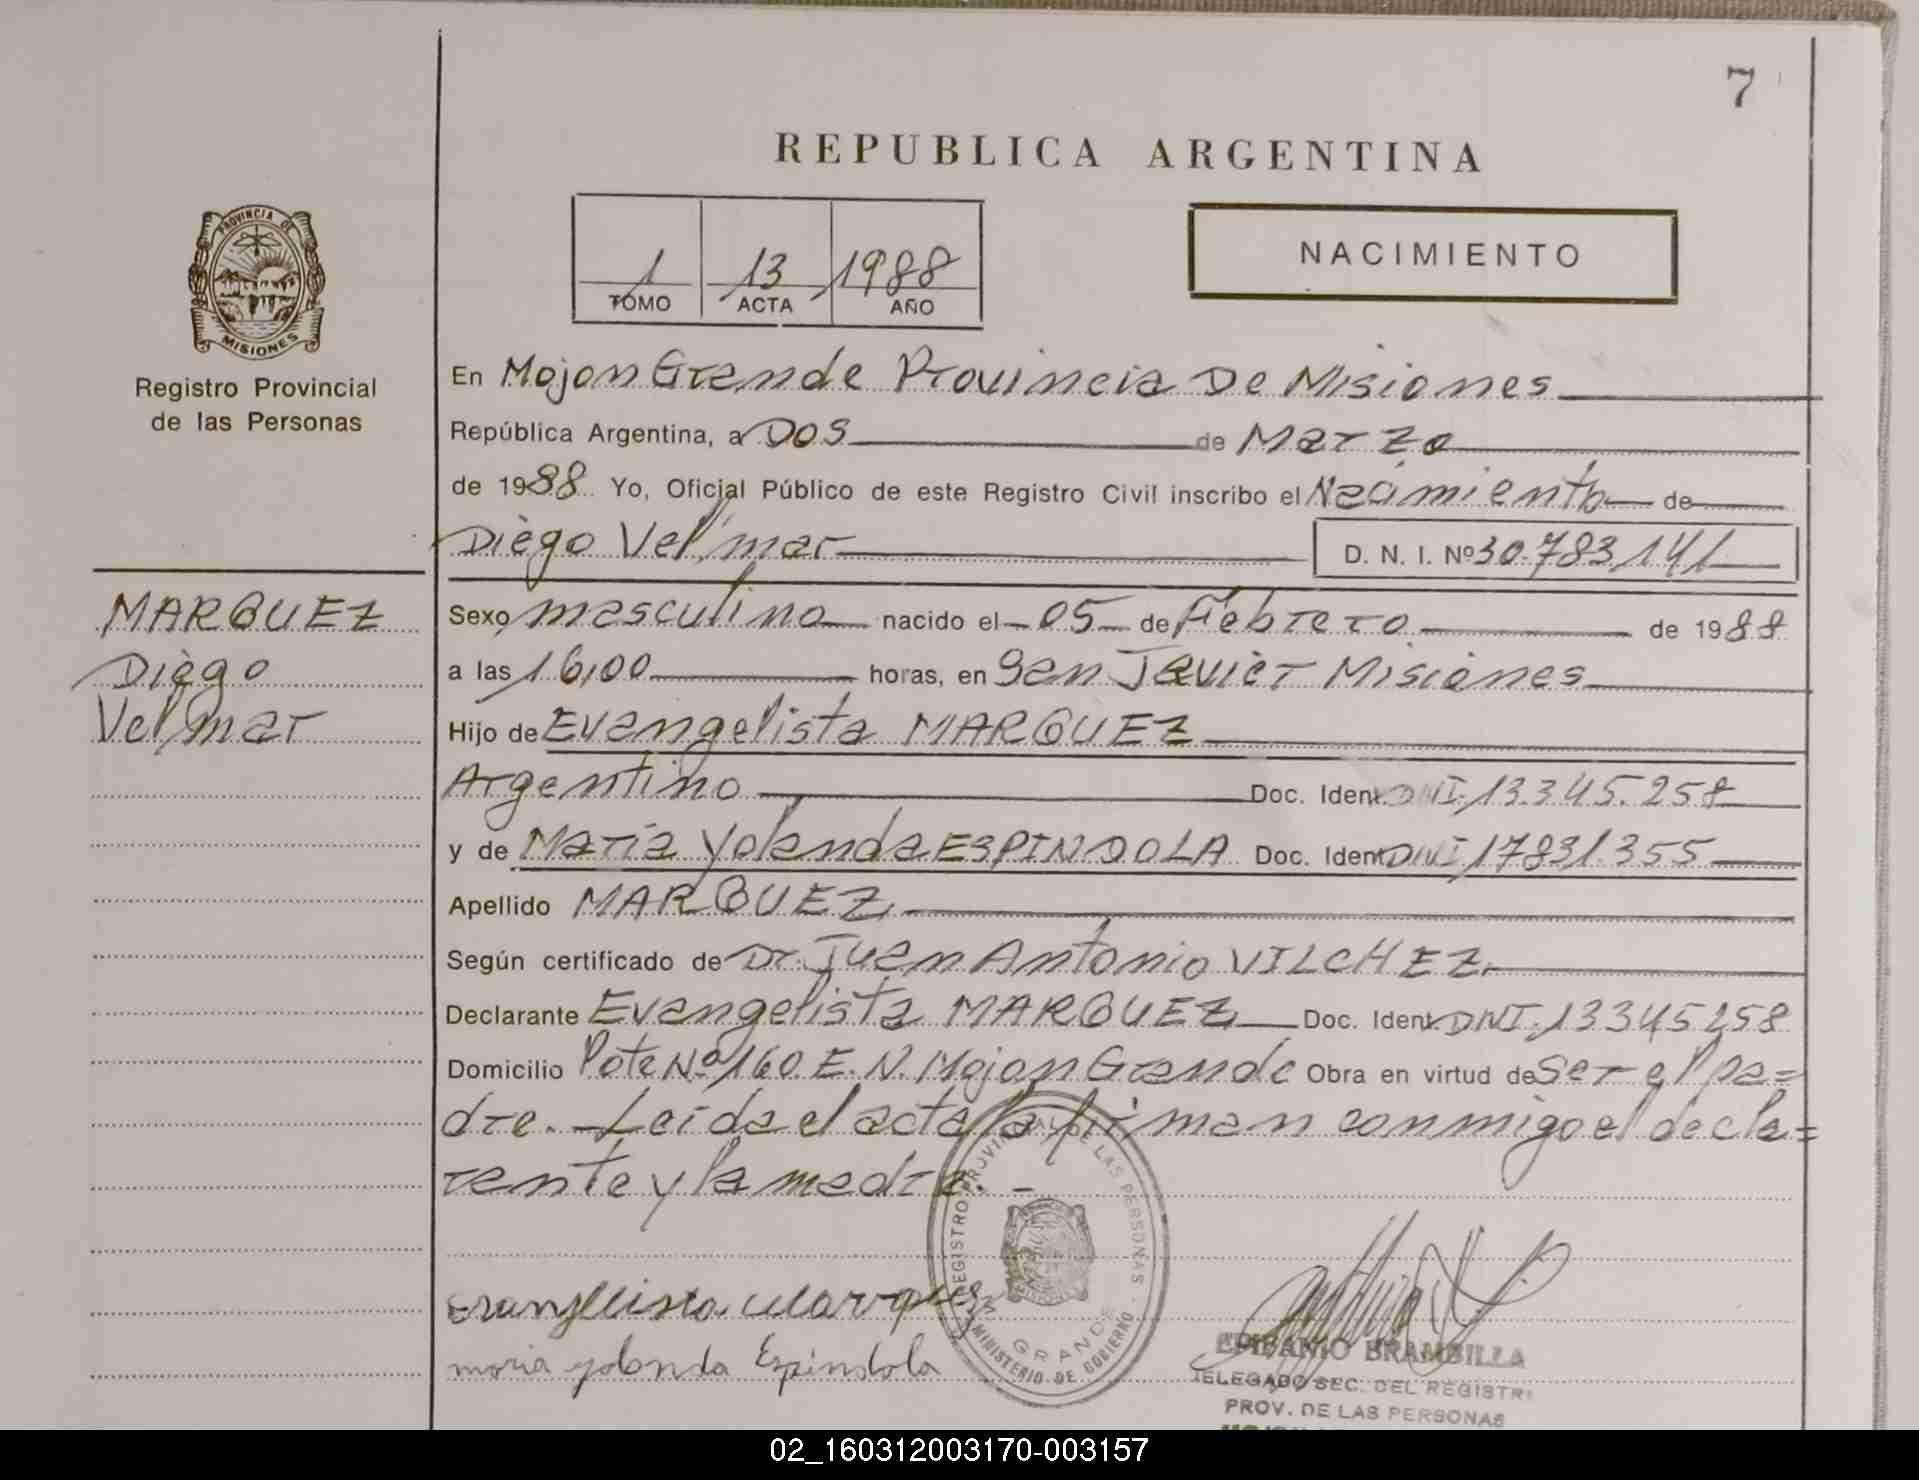 7
REPUBLICA ARGENTINA
1 13 1988
TOMO ACTA AÑO
NACIMIENTO
PROVINCIA DE
MISIONES
Registro Provincial
de las Personas
MARQUEZ
Diego
Velmar
En Mojon Grande Provincia De Misiones
República Argentina, a Dos de Marzo
de 1988 Yo, Oficial Público de este Registro Civil inscribo el Nacimiento de
Diego Velmar D. N. I. Nº 30.783.141
Sexo masculino nacido el 05 de Febrero de 1988
a las 16,00 horas, en San Javier Misiones
Hijo de Evangelista MARQUEZ
Argentino Doc. Ident. DNI. 13.345.258
y de Maria Yolanda ESPINDOLA Doc. Ident. DNI 17831.355
Apellido MARQUEZ
Según certificado de Dr. Juan Antonio VILCHEZ.
Declarante Evangelista MARQUEZ Doc. Ident DNI. 13345258
Domicilio Nº 160 E. N. Mojon Grande Obra en virtud de Ser el pa=
dre. Leida el acta la firman conmigo el decla=
rante y la madre.
REGISTRO PROVINCIAL DE LAS PERSONAS
GRANDE
MINISTERIO DE GOBIERNO
evangelista marques
maria yolanda Espindola
EPIFANIO BRAMBILLA
DELEGADO SEC. DEL REGISTR
PROV. DE LAS PERSONAS
02_160312003170-003157